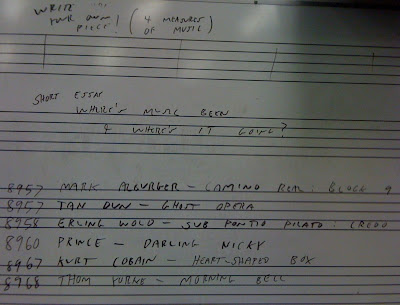 WRITE
YOUR OWN
PIECE! (4 MEASURES
OF MUSIC)
SHORT ESSAY
WHERE'S MUSIC BEEN
& WHERE'S IT GOING?
8957 MARK ALBURGER - CAMINO REAL: BLOCK 9
8957 TAN DUN - GHOST OPERA
8958 ERLING WOLD - SUB PONTIO PILATO: CREDO
8960 PRINCE - DARLING NICKY
8967 KURT COBAIN - HEART-SHAPED BOX
8968 THOM YORKE - MORNING BELL